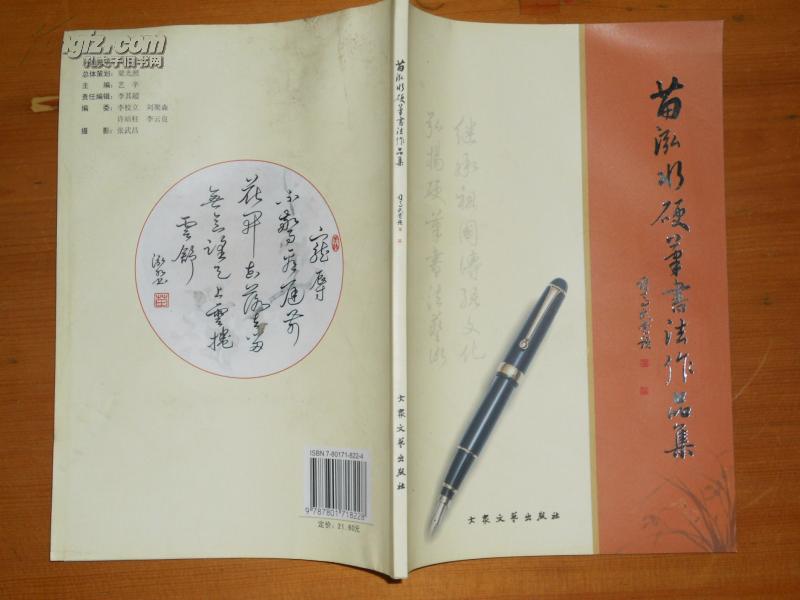 kongfz.com
孔夫子旧书网
总体策划：梁光照
主　　编：艺　辛
责任编辑：李其超
编　　委：李俊立　刘聚森
许培柱　李云良
摄　　影：张武昌
宠辱
不惊看庭前
花开花落去留
无意望天上云卷
云舒
ISBN 7-80171-822-4
9 787801 718228
定价：21.80元
苗泓水硬笔书法作品集
大众文艺出版社
继承祖国传统文化
弘扬硬笔书法艺术
大众文艺出版社
苗泓水硬笔書法作品集